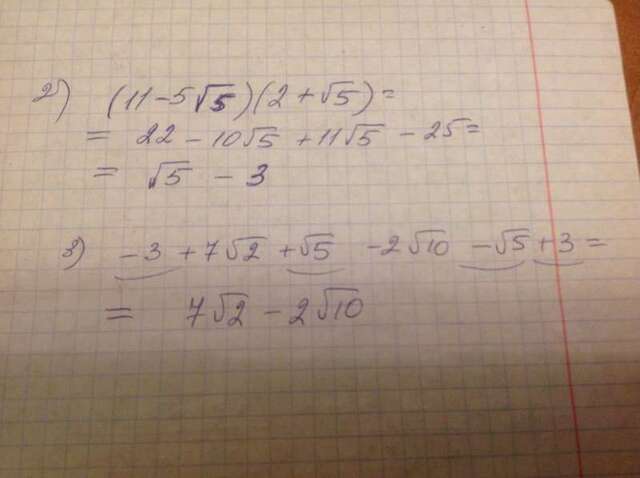 2) (11-5√5)(2+√5)=
= 22-10√5+11√5-25=
= √5-3
3) -3+7√2+√5-2√10-√5+3=
= 7√2-2√10